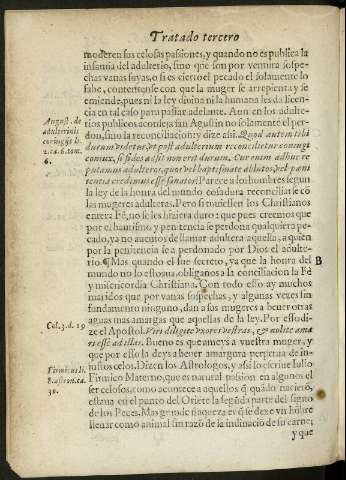 Tratado tercero
moderen sus celosas passiones, y quando no es publica la
infamia del adulterio, sino que son por ventura sospe-
chas vanas suyas, o si es cierto el pecado el solamente lo
sabe, contentense con que la muger se arrepienta y se
emiende, pues ni la ley diuina ni la humana les da licen-
cia en tal caso para passar adelante. Aun en los adulte-
rios publicos aconseja san Augustin no solamente el per-
don, sino la reconciliacion y dize assi. Quod autem tibi
durum videtur, vt post adulterium reconcilietur coniugi
coniux, si fides adsit non erit durum. Cur enim adhuc re
putamus adulteros, quos vel baptismate ablutos, vel pœni
tentia credimus esse sanatos? Parece a los hombres segun
la ley de la honra del mundo cosa dura reconciliarse cō
las mugeres adulteras. Pero si tuuiessen los Christianos
entera Fè, no se les hiziera duro: pue pues creemos que
por el bautismo, y penitencia se perdona qualquiera pe-
cado, ya no auemos de llamar adultera aquella, a quien
por la penitencia fea perdonado por Dios el adulte-
rio. ¶ Mas quando el fue secreto, ya que la honra del
mundo no lo estorua, obliganos a la conciliacion la Fè
y misericordia Christiana. Con todo esso ay muchos
maridos que por vanas sospechas, y algunas vezes sin
fundamento ninguno, dan a sus mugeres a beuer otras
aguas mas amargas que aquellas de la ley. Por esso di-
ze el Apostol. Viri diligite vxores vestras, & nolite ama
ri esse ad illas. Bueno es que ameys a vuestra muger, y
que por esso la deys a beuer amargura perpetua de in-
justos celos. Dizen los Astrologos, y assi lo escriue Iulio
Firmico Materno, que es natural passion en algunos el
ser celosos, como acontece a aquellos q̃ quādo nacierō,
estaua en el punto del Oriēte la segūda part del signo
de los Peces. Mas grande flaqueza es q̃ se dexe vn hōbre
llenar como animal sin razō de la inclinaciō de su carne;
y que
August. de
adulterinis
coniugijs li.
2. ca. 6. tom.
6.
B
Col. 3. d. 19
Firmicus li.
8. astron. ca.
30.